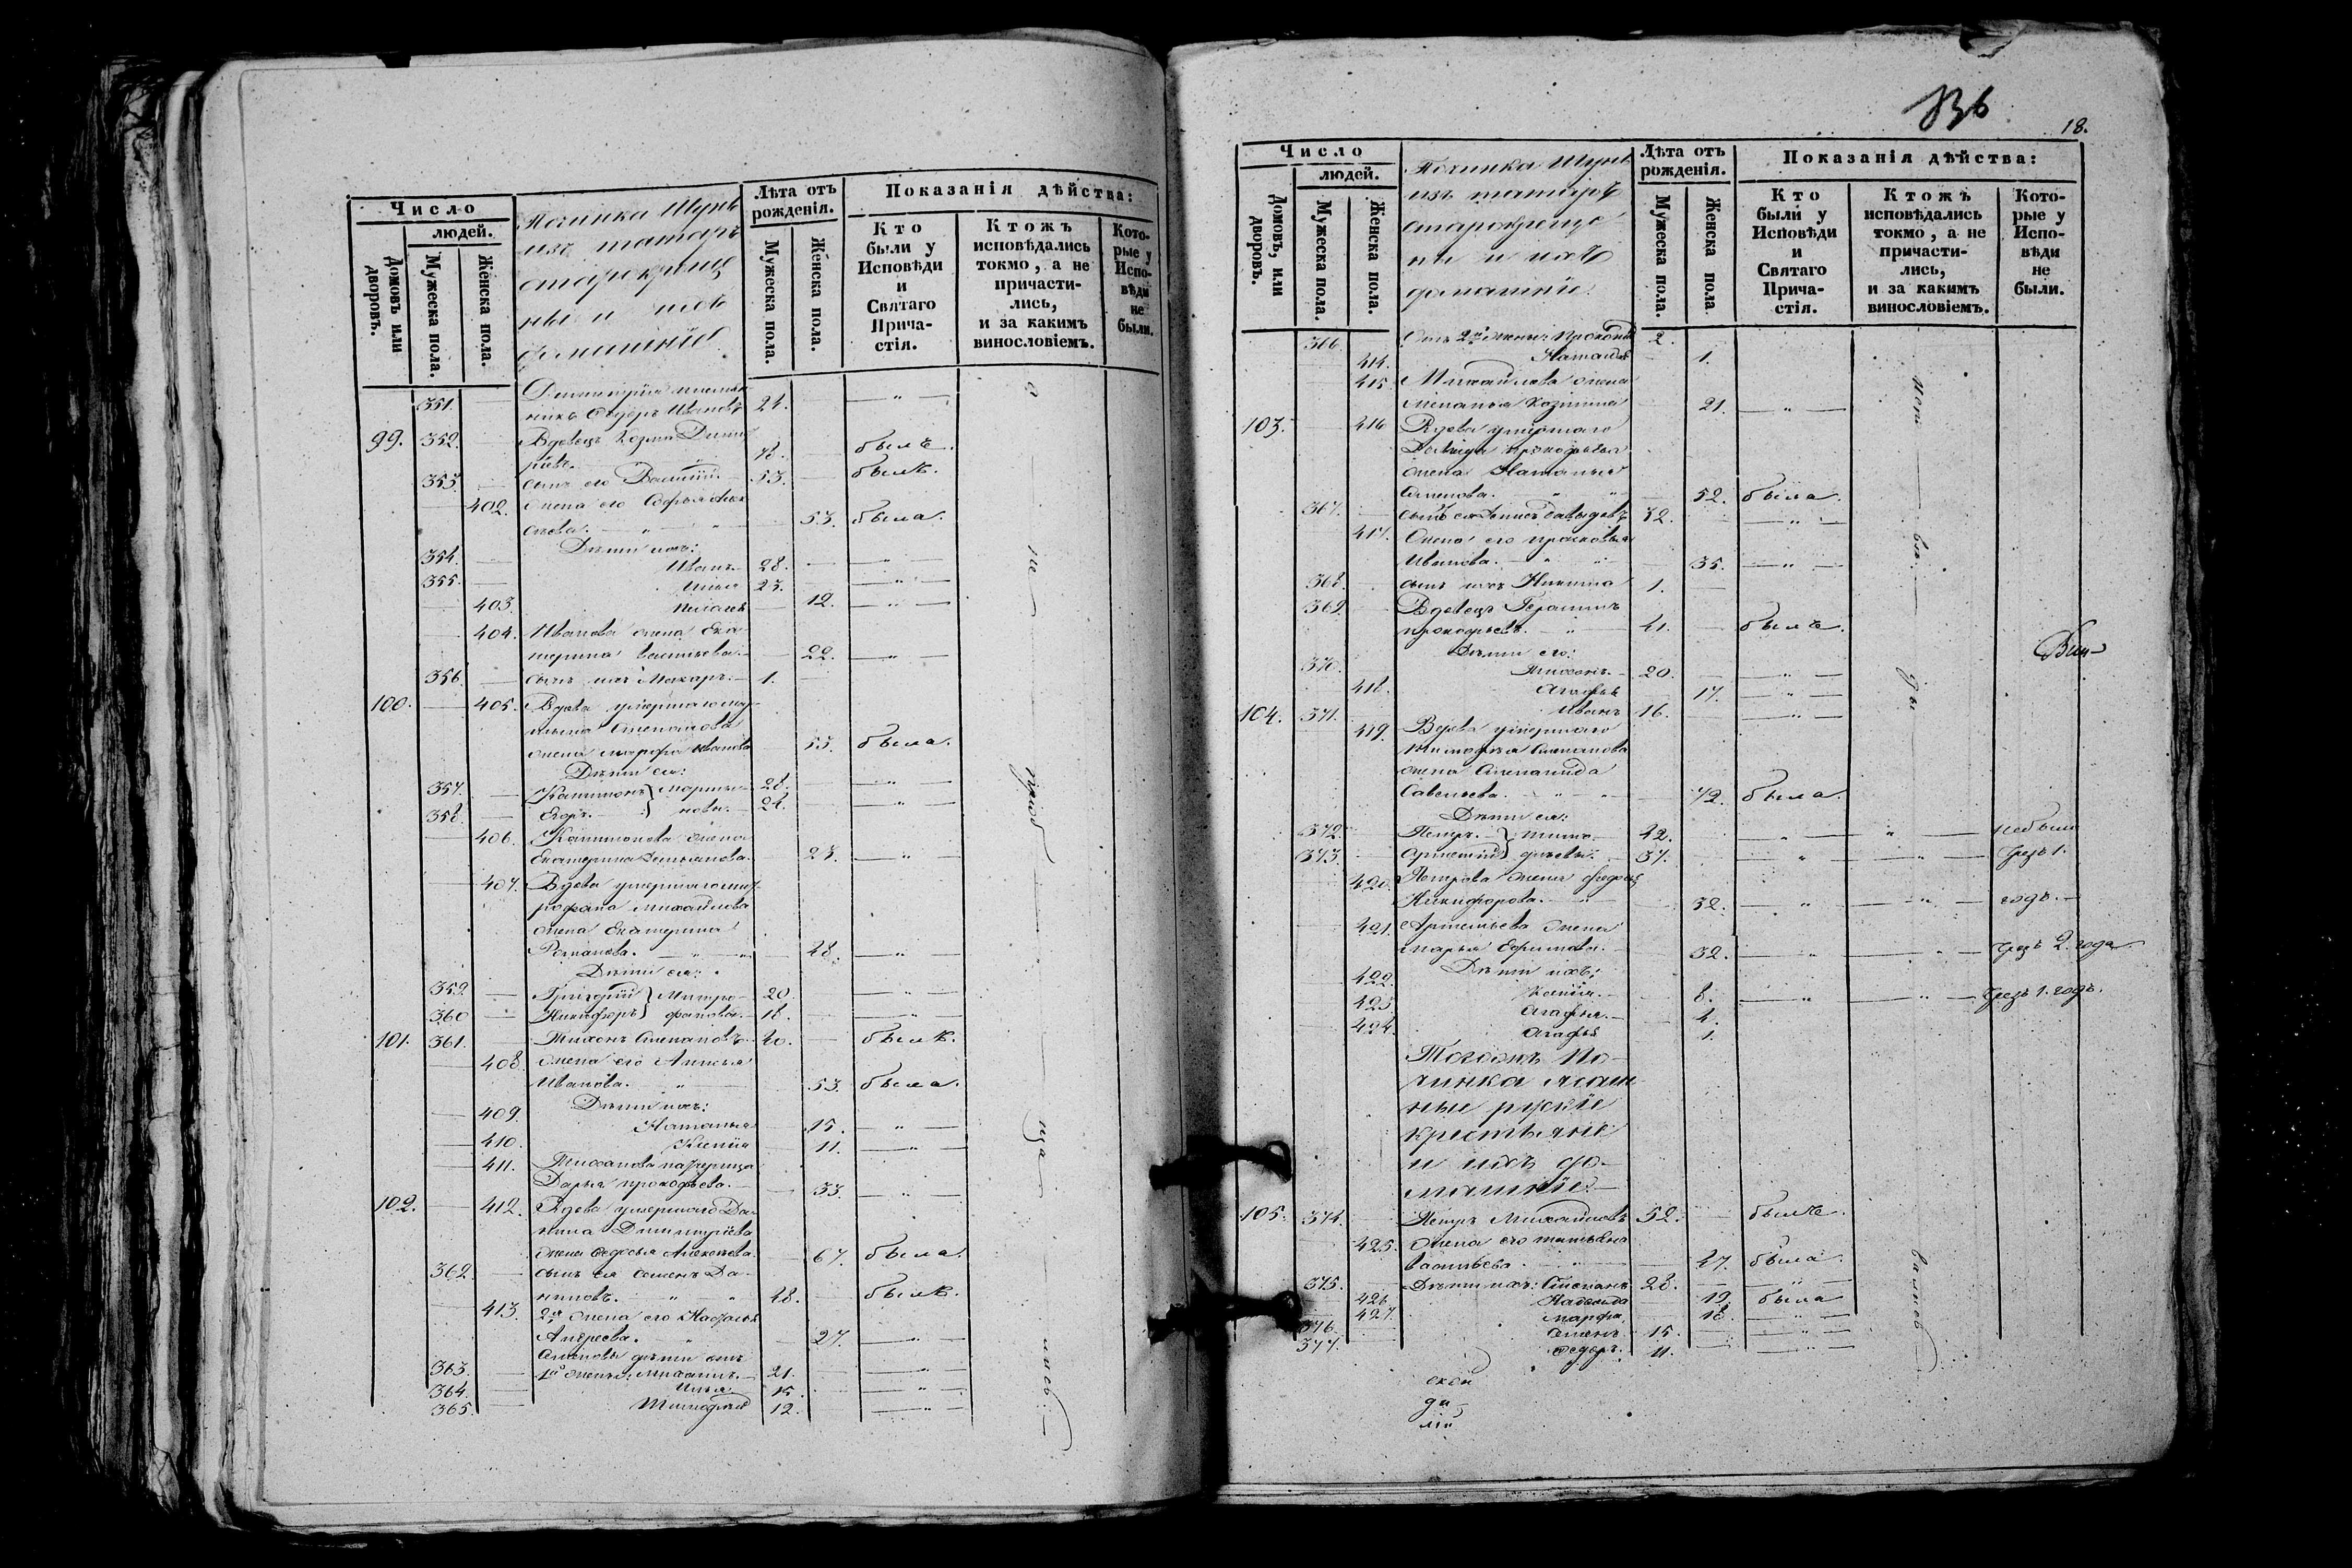 Число
людей.
Домовъ или дворовъ.
Мужеска пола.
Женска пола.
Починка Шунь
изъ татаръ
старокреще
ны и ихъ
домашнїе.
Лѣта отъ
рожденія.
Мужеска пола.
Женска пола.
Показанія дѣйства:
Кто
были у
Исповѣди
и
Святаго
Прича-
стія.
Ктожъ
исповѣдались
токмо, а не
причасти-
лись,
и за какимъ
винословіемъ.
Кото-
рые у
Испо-
вѣди
не
были.
Димитрїя племян
351. никъ Ѳедоръ Ивановъ 24. — „ —
99. 352. Вдовецъ Козма Дими
рїевъ. былъ.
353. сынъ его Василїй. 53. былъ.
402. жена его Софья Алек
сѣева. — „ — 53. была.
Дѣти ихъ:
354. Иванъ 28. — „ —
355. Илья 23. — „ —
403. Пелагея 12. — „ —
404. Иванова жена Ека-
терина Васильева. 22. — „ —
356. сынъ ихъ Макаръ. 1.
100. 405. Вдова умершаго Мар-
тына Степанова
жена Марфа Иванова 53. была.
Дѣти ея:
357. Капитонъ } Марты- 28. — „ —
358. Егоръ. } новы. 24. — „ —
406. Капитонова жена
Екатерина Демьянова. 23. — „ —
407. Вдова умершаго Мит-
рофана Михайлова
жена Екатерина
Романова. 48. — „ —
Дѣти ея:
359. Григорїй } Митро- 20. — „ —
360 Никифоръ } фановы. 18. — „ —
101. 361. Тихонъ Степановъ. 40. былъ.
408. жена его Анисья
Иванова. „ 53. была.
Дѣти ихъ:
409. Наталья 15. „ —
410. Ксенїя 11. — „ —
411. Тихонова падчерица
Дарья Прокофьева. 33. — „ —
102. 412. Вдова умершаго Да-
нила Димитрїева
жена Ѳедосья Алексѣева. 67. была.
362. сынъ ея Семенъ Да-
ниловъ. „ „ 48. былъ.
413. 2я жена его Настасья
Андреева. „ 27. — „ —
Семеновы дѣти отъ
363. 1й жены: Михаилъ. 21. — „ —
364. Илья 15. — „ —
365. Тимофей 12. — „ —
136
18.
Число
людей.
Домовъ, или дворовъ.
Мужеска пола.
Женска пола.
Починка Шунь
изъ татаръ
старокреще
ны и ихъ
домашнїе.
Лѣта отъ
рожденія.
Мужеска пола.
Женска пола
Показанія дѣйства:
Кто
были у
Исповѣди
и
Святаго
Прича-
стія.
Ктожъ
исповѣдались
токмо, а не
причасти-
лись,
и за какимъ
винословіемъ.
Кото-
рые у
Испо-
вѣди
не
были.
366. Отъ 2й жены: Прокопїй 2.
414. Наталья 1.
415 Михайлова жена
Меланья Козмина 21. — „ —
103. 416 Вдова умершаго
Давыда Прокофьева
жена Наталья
Семенова. „ „ 52. была.
367. сынъ ея Денисъ Давыдовъ 32. — „ —
417. Жена его Прасковья
Иванова. „ 35. — „ —
368. сынъ ихъ Никита 1.
369. Вдовецъ Герасимъ
Прокофьевъ. „ 41. былъ.
Дѣти его:
370. Тихонъ. 20. — „ —
418. Агафья 17. — „ —
104. 371. Иванъ 16. — „ —
419. Вдова умершаго
Тимофея Степанова
жена Степанида
Савельева. „ „ 72. была.
Дѣти ея:
372. Петръ. } Тимо- 42. „ — „ — небыли
373. Артемїй } фѣевы. 37. „ — „ — чрезъ 1.
420. Петрова жена Ѳедосья
Никифорова. „ 32. — „ — „ — годъ.
421. Артемьева жена
Марья Ефимова. 32. — „ — „ — чрезъ 2. года
422. Дѣти ихъ:
Ксенїя. 8. — „ — „ — чрезъ 1. годъ.
423. Агафья. 4.
424. Агафья 1.
Тогожъ По-
чинка ясаш
ные рускїе
крестьяне
и ихъ до-
машнїе.
105. 374. Петръ Михайловъ 52. былъ.
425. жена его Татьяна
Васильева. „ 47. была.
375. Дѣти ихъ: Степанъ 28. — „ —
426. Надежда 19. была
427. Марфа 18. — „ —
376. Семенъ 15. — „ —
377. Ѳедоръ. 11. — „ —